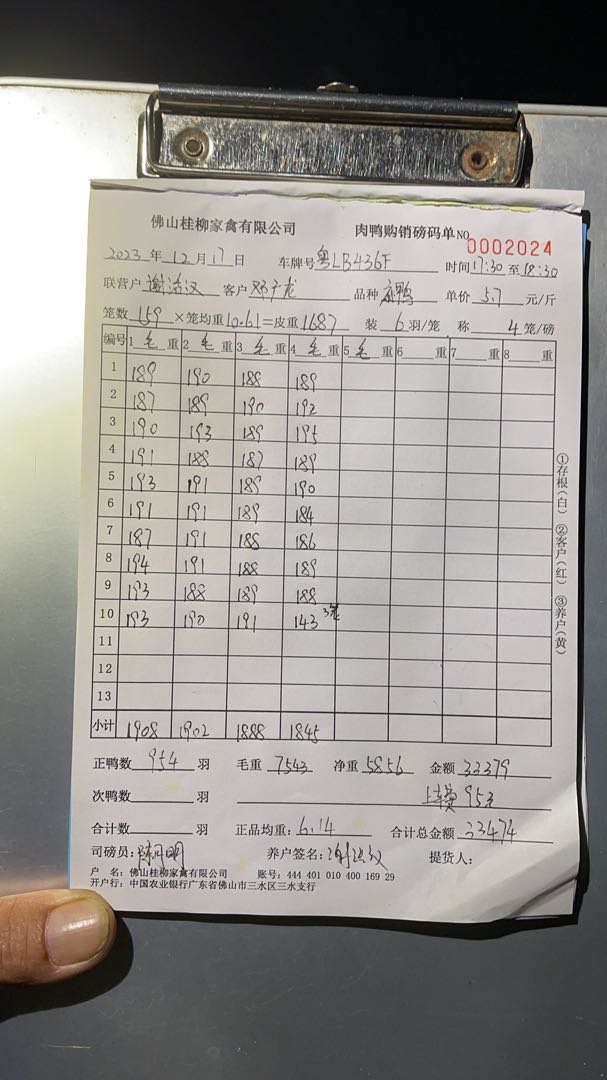 佛山桂柳家禽有限公司 肉鸭购销磅码单NO 0002024
2023年12月17日 车牌号粤LB436F 时间17:30至18:30
联营户 客户邓广龙 品种麻鸭 单价5.7元/斤
笼数159×笼均重10.61=皮重1687 装6羽/笼 称4笼/磅
编号 1毛重 2毛重 3毛重 4毛重 5毛重 6重 7重 8重
1 189 190 188 189
2 187 189 190 192
3 190 193 189 195
4 191 188 187 189
5 193 191 189 190
6 191 191 189 184
7 187 191 188 186
8 194 191 188 189
9 193 188 189 188
10 193 190 191 143 3笼
11
12
13
小计 1908 1902 1888 1845
①存根(白) ②客户(红) ③养户(黄)
正鸭数954羽 毛重7543 净重5856 金额33379
次鸭数 羽 953
合计数 羽 正品均重:6.14 合计总金额33474
司磅员: 养户签名: 提货人:
户 名:佛山桂柳家禽有限公司 账号:444 401 010 400 169 29
开户行:中国农业银行广东省佛山市三水区三水支行